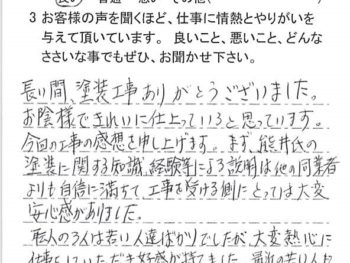 良い 普通 悪い その他(
3 お客様の声を聞くほど、仕事に情熱とやりがいを
与えて頂いています。 良いこと、悪いこと、どんな
ささいな事でもぜひ、お聞かせ下さい。
長い間、塗装工事ありがとうございました。
お陰様できれいに仕上っていると思っています。
今回の工事の感想を申し上げます。まず、熊井氏の
塗装に関する知識、経験等による説明は他の同業者
よりも自信に満ちて、工事を受ける側にとっては大変
安心感がありました。
職人の3人は若い人達ばかりでしたが、大変熱心に
仕事をしていただき好感が持てました。最近の若い人は